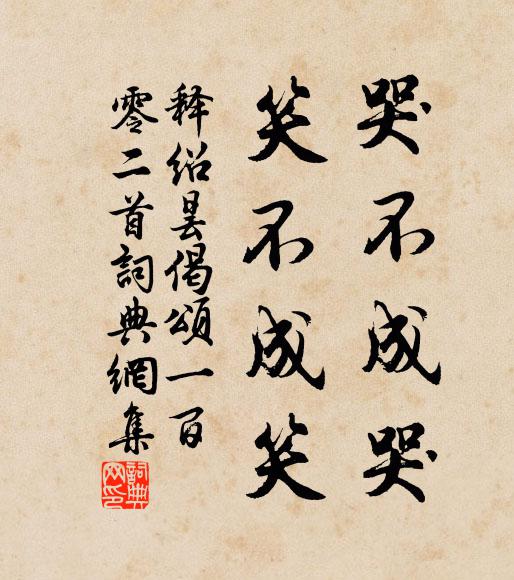 哭不成哭
笑不成笑
释绍昙偈颂一百
零二首詞典網集
詞典网印